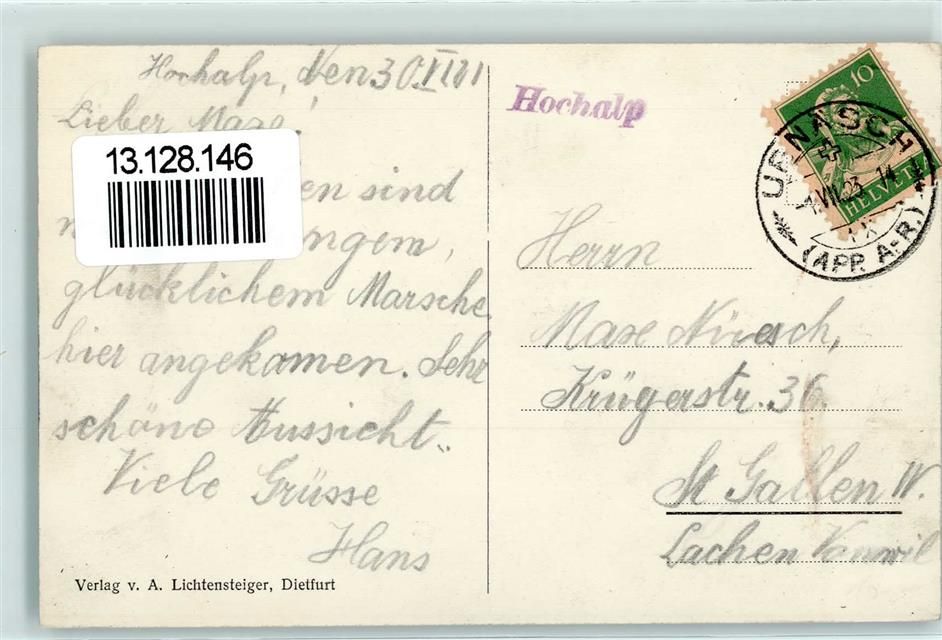 Hochalp, den 30.
Lieber Maxe!
13.128.146
en sind
ngem,
glücklichem Marsche
hier angekamen. Sehr
schöne Aussicht.
Viele Grüsse
Hans
Verlag v. A. Lichtensteiger, Dietfurt
Hochalp
10
HELVETIA
URNÄSCH
(APP. A.-R.)
Herrn
Maxe Nüesch,
Krügerstr. 36
St Gallen W.
Lachen Vonwil